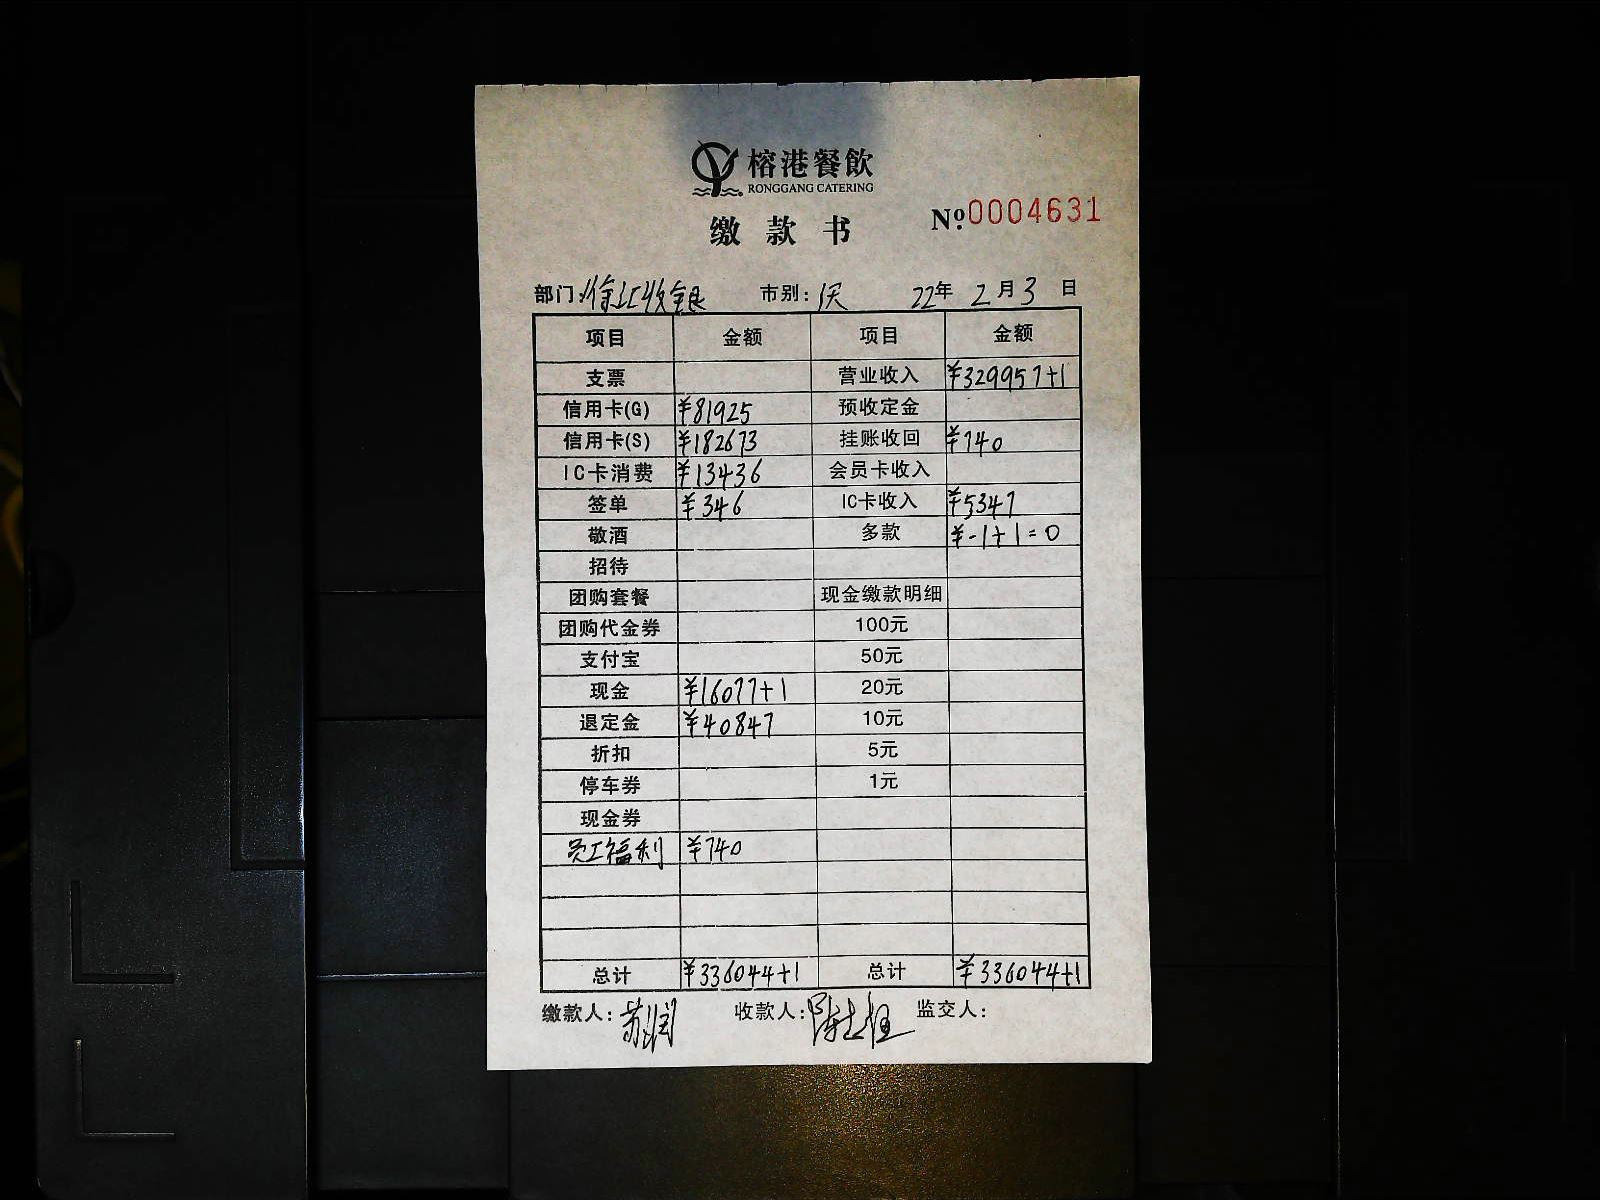 榕港餐飲
RONGGANG CATERING
缴款书 №0004631
部门:徐汇收银 市别: 22年 2月3日
项目 金额 项目 金额
支票 营业收入 ¥329957+1
信用卡(G) ¥81925 预收定金
信用卡(S) ¥182673 挂账收回 ¥740
IC卡消费 ¥13436 会员卡收入
签单 ¥346 IC卡收入 ¥5347
敬酒 多款 ¥-1+1=0
招待
团购套餐 现金缴款明细
团购代金券 100元
支付宝 50元
现金 ¥16077+1 20元
退定金 ¥40847 10元
折扣 5元
停车券 1元
现金券
员工福利 ¥740
总计 ¥336044+1 总计 ¥336044+1
缴款人: 收款人: 监交人: